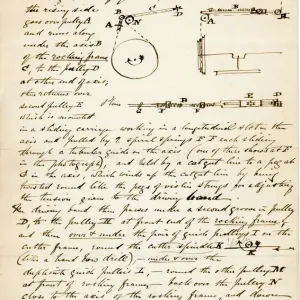 the rising side
goes over pulley B
and runs along
under the axis B
of the rocking frame
C, to the pulley D
at other end of axis;
then returns over
second pulley E
which is mounted
in a sliding carriage working in a longitudinal slot in the
axis and pulled by 2 spiral springs F F each sliding
through a tubular guide on the axis (one of these shown at F
in the photograph), and held by a catgut line to a peg at
in the axis, which winds up the catgut line by being
twisted round like the pegs of violin strings for adjusting
the tension given to the driving band
The driving band then passes under a second groove in pulley
D to the pulley at front end of the rocking frame,
and then over & under the pair of guide pulleys I on the
cutter frame, round the cutter spindle
(like a hand bow drill) — under & over the
duplicate guide pulleys L, — round the other pulley M
at front of rocking frame, — back over the pulley N
close to the axis of the rocking frame, and down